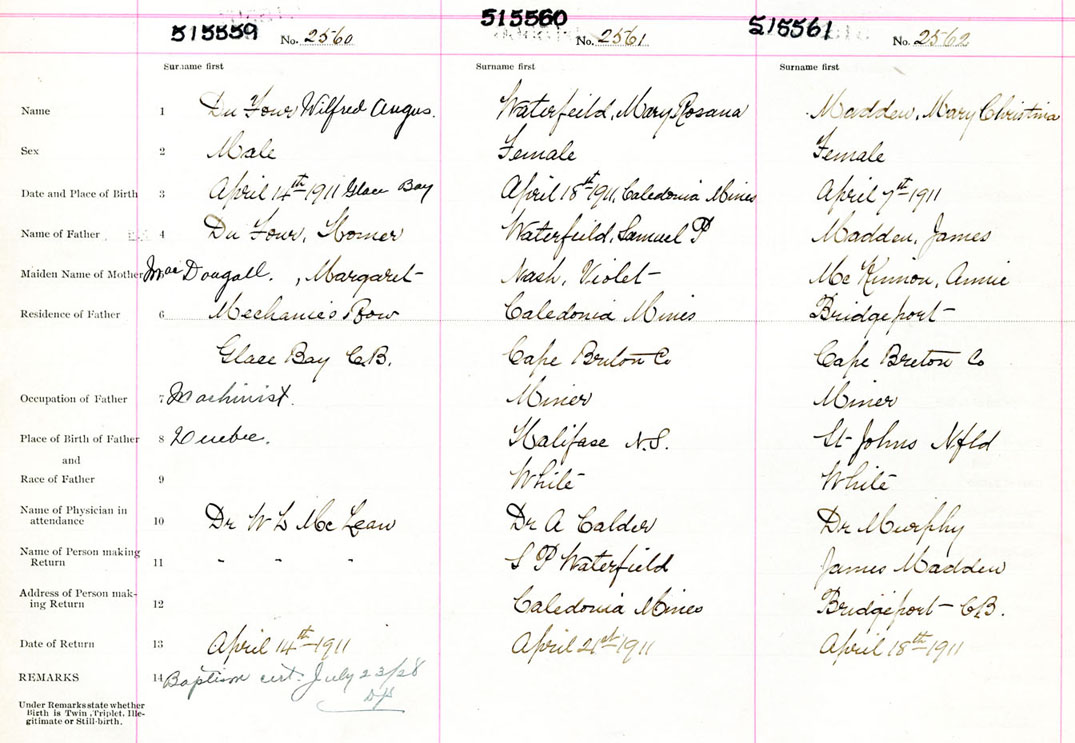 515559 No. 2560 515560 No. 2561 515561 No. 2562
Surname first Surname first Surname first
Name 1 Du Four Wilfred Angus. Waterfeild, Mary Rosana Madden, Mary Christina
Sex 2 Male Female Female
Date and Place of Birth 3 April 14th 1911 Glace Bay April 18th 1911, Caledonia Mines April 7th 1911
Name of Father 4 Du Four, Homer Waterfeild, Samuel P Madden, James
Maiden Name of Mother Mac Dougall. , Margaret Nash, Violet Mc Kinnon, Annie
Residence of Father 6 Mechanics Row Caledonia Mines Bridgeport
Glace Bay C.B. Cape Breton Co Cape Breton Co
Occupation of Father 7 Machinist. Miner Miner
Place of Birth of Father 8 Quebec. Halifax N.S. St Johns Nfld
and
Race of Father 9 White White
Name of Physician in
attendance 10 Dr W L Mc Lean Dr A Calder Dr Murphy
Name of Person making
Return 11 " " " S P Waterfield James Madden
Address of Person mak-
ing Return 12 Caledonia Mines Bridgeport C.B.
Date of Return 13 April 14th 1911 April 21st 1911 April 18th 1911
REMARKS 14 Baptism cert. July 23/28
Under Remarks state whether
Birth is Twin, Triplet, Ille-
gitimate or Still-birth.